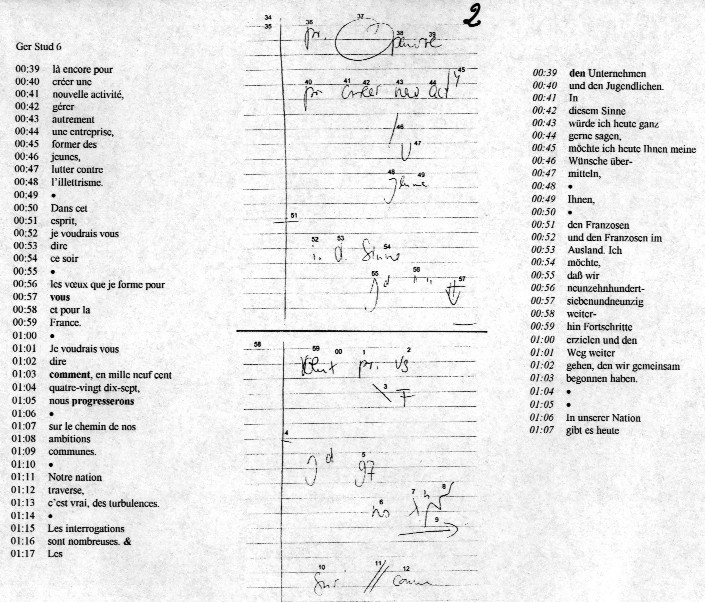 2
Ger Stud 6
00:39 là encore pour
00:40 créer une
00:41 nouvelle activité,
00:42 gérer
00:43 autrement
00:44 une entreprise,
00:45 former des
00:46 jeunes,
00:47 lutter contre
00:48 l'illettrisme.
00:49 •
00:50 Dans cet
00:51 esprit,
00:52 je voudrais vous
00:53 dire
00:54 ce soir
00:55 •
00:56 les vœux que je forme pour
00:57 vous
00:58 et pour la
00:59 France.
01:00 •
01:01 Je voudrais vous
01:02 dire
01:03 comment, en mille neuf cent
01:04 quatre-vingt dix-sept,
01:05 nous progresserons
01:06 •
01:07 sur le chemin de nos
01:08 ambitions
01:09 communes.
01:10 •
01:11 Notre nation
01:12 traverse,
01:13 c'est vrai, des turbulences.
01:14 •
01:15 Les interrogations
01:16 sont nombreuses. &
01:17 Les
34
35
36 37 38 39
pr.
40 41 42 43 44 45
pr créer nov act
46
47
48 49
51
52 53 54
i. d. Sinne
55 56 57
58 59 00 1 2
pr. vs
3
F
4
5
J d 97
6 7 8
no
9
10 11 12
//
00:39 den Unternehmen
00:40 und den Jugendlichen.
00:41 In
00:42 diesem Sinne
00:43 würde ich heute ganz
00:44 gerne sagen,
00:45 möchte ich heute Ihnen meine
00:46 Wünsche über-
00:47 mitteln,
00:48 •
00:49 Ihnen,
00:50 •
00:51 den Franzosen
00:52 und den Franzosen im
00:53 Ausland. Ich
00:54 möchte,
00:55 daß wir
00:56 neunzehnhundert-
00:57 siebenundneunzig
00:58 weiter-
00:59 hin Fortschritte
01:00 erzielen und den
01:01 Weg weiter
01:02 gehen, den wir gemeinsam
01:03 begonnen haben.
01:04 •
01:05 •
01:06 In unserer Nation
01:07 gibt es heute